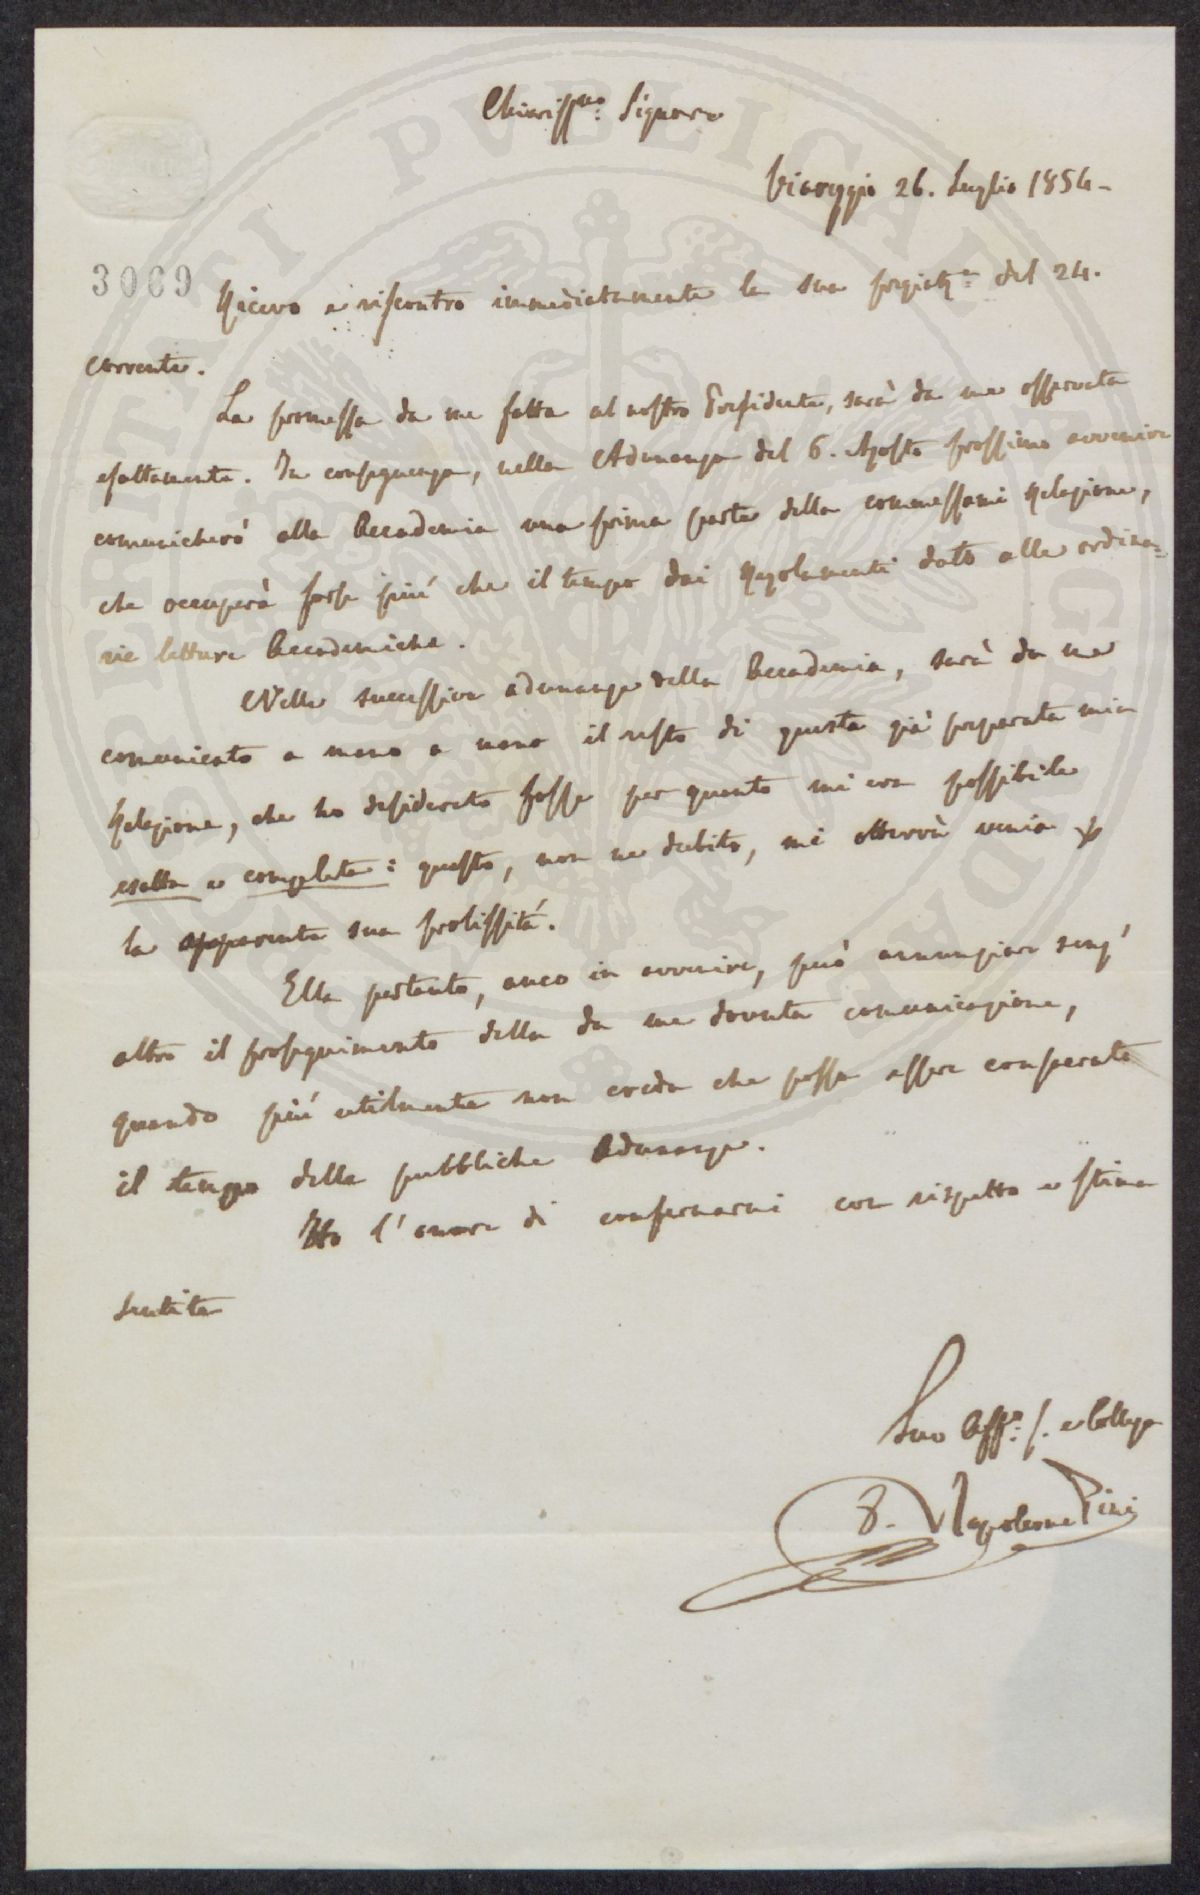 Chiariss.mo Signore
Viareggio 26. Luglio 1854-
3069
Ricevo e riscontro immediatamente la sua pregiat.a del 24.
corrente.
La promessa da me fatta al nostro Presidente, sarà da me osservata
esattamente. In conseguenza, nella Adunanza del 6. Agosto prossimo avvenire
comunicherò alla Accademia una prima parte della commessami Relazione,
che occuperà forse più che il tempo dai Regolamenti dato alle ordina=
rie letture Accademiche.
Nelle successive adunanze della Accademia, sarà da me
comunicato a mano a mano il resto di questa già preparata mia
Relazione, che ho desiderato fosse per quanto mi era possibile
esatta e completa: questo, non ne dubito, mi otterrà venia p
la apparente sua prolissità.
Ella pertanto, anco in avvenire, può annunziare senz'
altro il proseguimento della da me dovuta comunicazione,
quando più utilmente non creda che possa essere consecrato
il tempo delle pubbliche Adunanze.
Ho l'onore di confermarmi con rispetto e stima
sentita
Suo Aff.o S. e Collega
Napoleone Pini